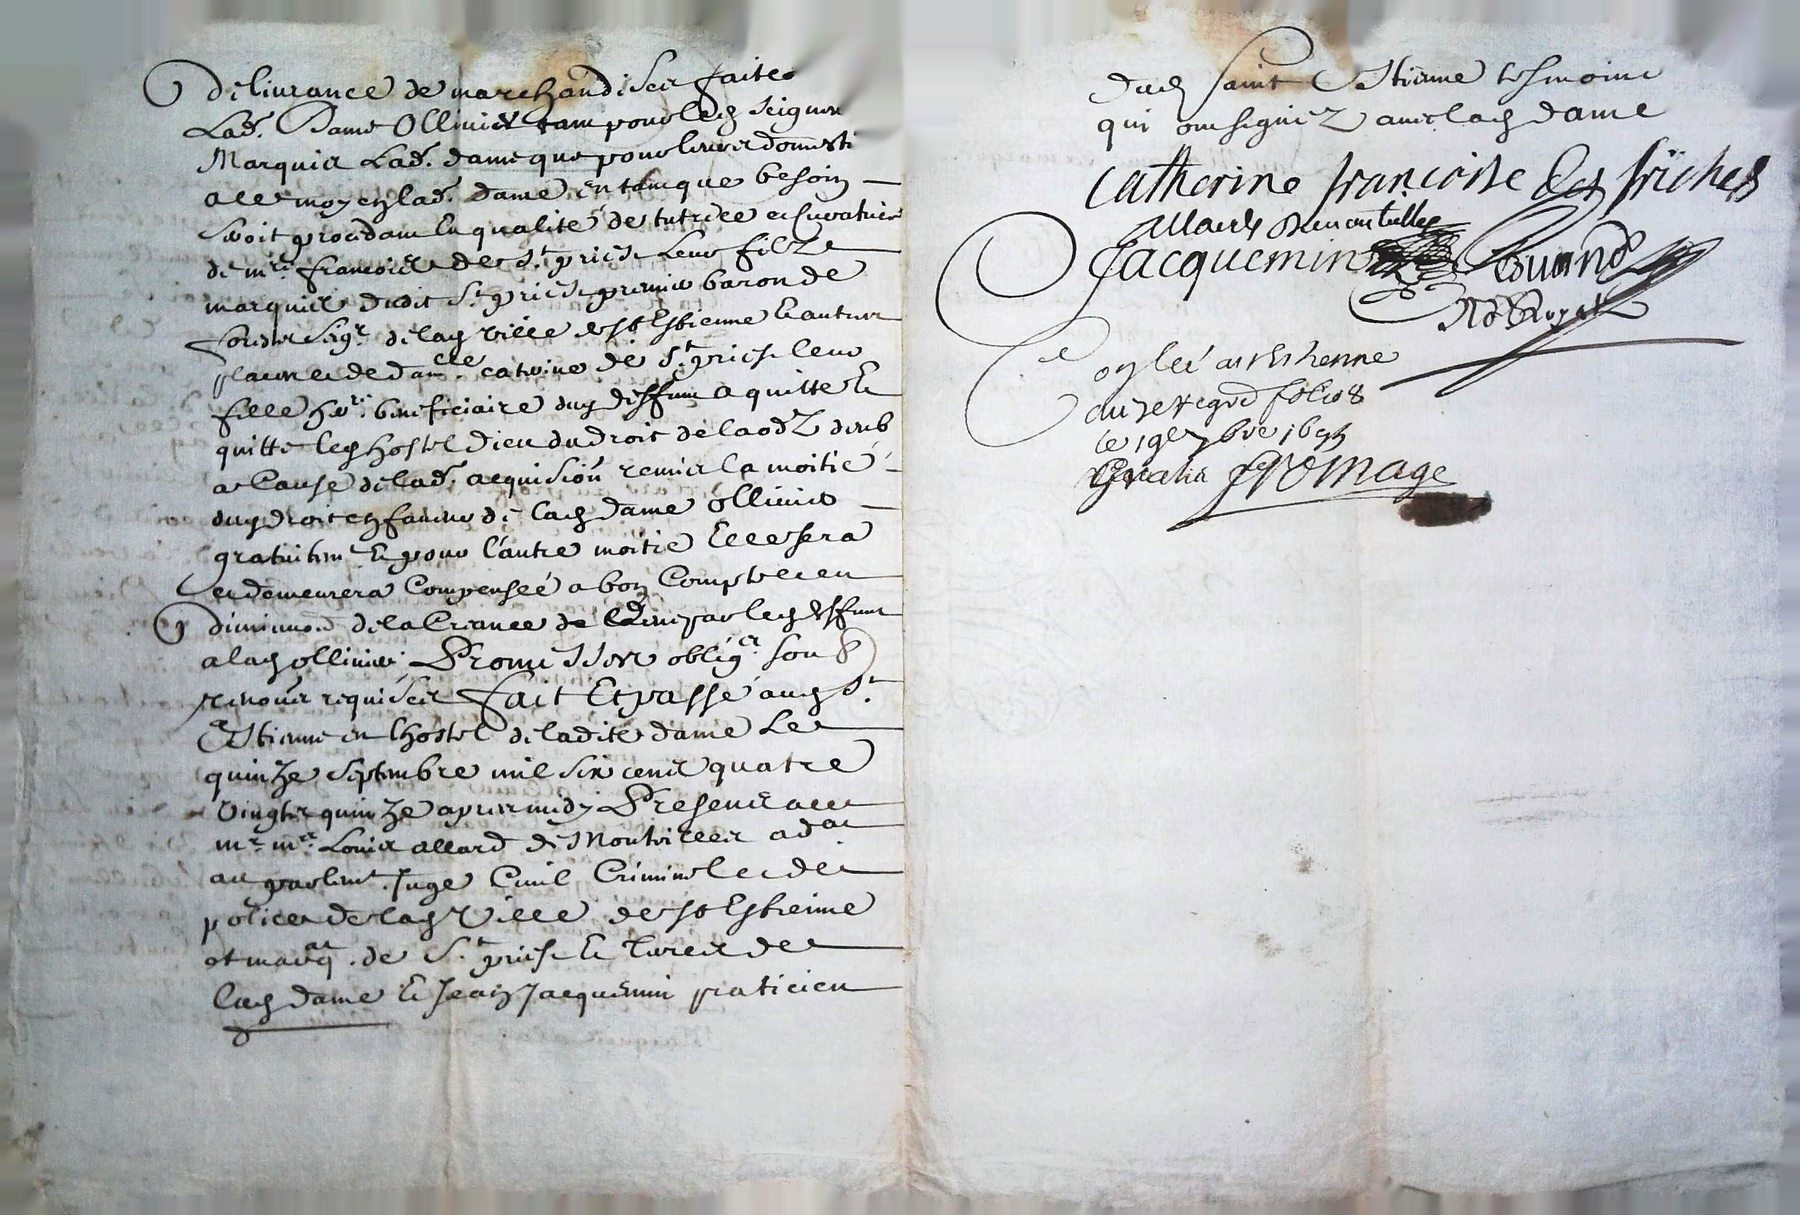 délivrance de marchandises faites
Lad. Dame Ollivier tant pour led seigneur
Marquis Lad. dame que pour leurs domesti
dame en tant que besoin
soit procedant en qualité de tutrice et curatrice
de mre. francois de St. priest leur filz
marquis dudit St. priest premier baron de
seigr. de lad ville de St Estienne et autres
places et de damlle. catrine de St. priest leur
fille her. beneficiaire dud deffunt a quitté et
quitte led hostel Dieu du droit de laodz deub
a cause de lad. acquision remis la moitié
dud droit en faveur de lad dame ollivier
gratuitmt. Et pour l'autre moitié Elle sera
et demeurera Compensée a bon Compte et en
de la Creance de par led deffunt
a lad ollivier. Promisses obligr. soub
renonces requises fait Et passé aud St.
Estienne en l'hostel de ladite dame Le
quinze septembre mil six cent quatre
vingts quinze apres midy Presents
mr. mre. Louis allard de Montvilles adat
au parlemt. Juge Civil Criminel et de
police de lad Ville de St Estienne
et marqat. de St. priest de
lad dame Et Jean Jacquemin praticien
dud saint Estienne tesmoins
qui ont signez avec lad dame
Catherine francoise des friches
allard
Jacquemin
No Royal
le à St Estienne
folio 8
le 19e 7bre 1695
fromage